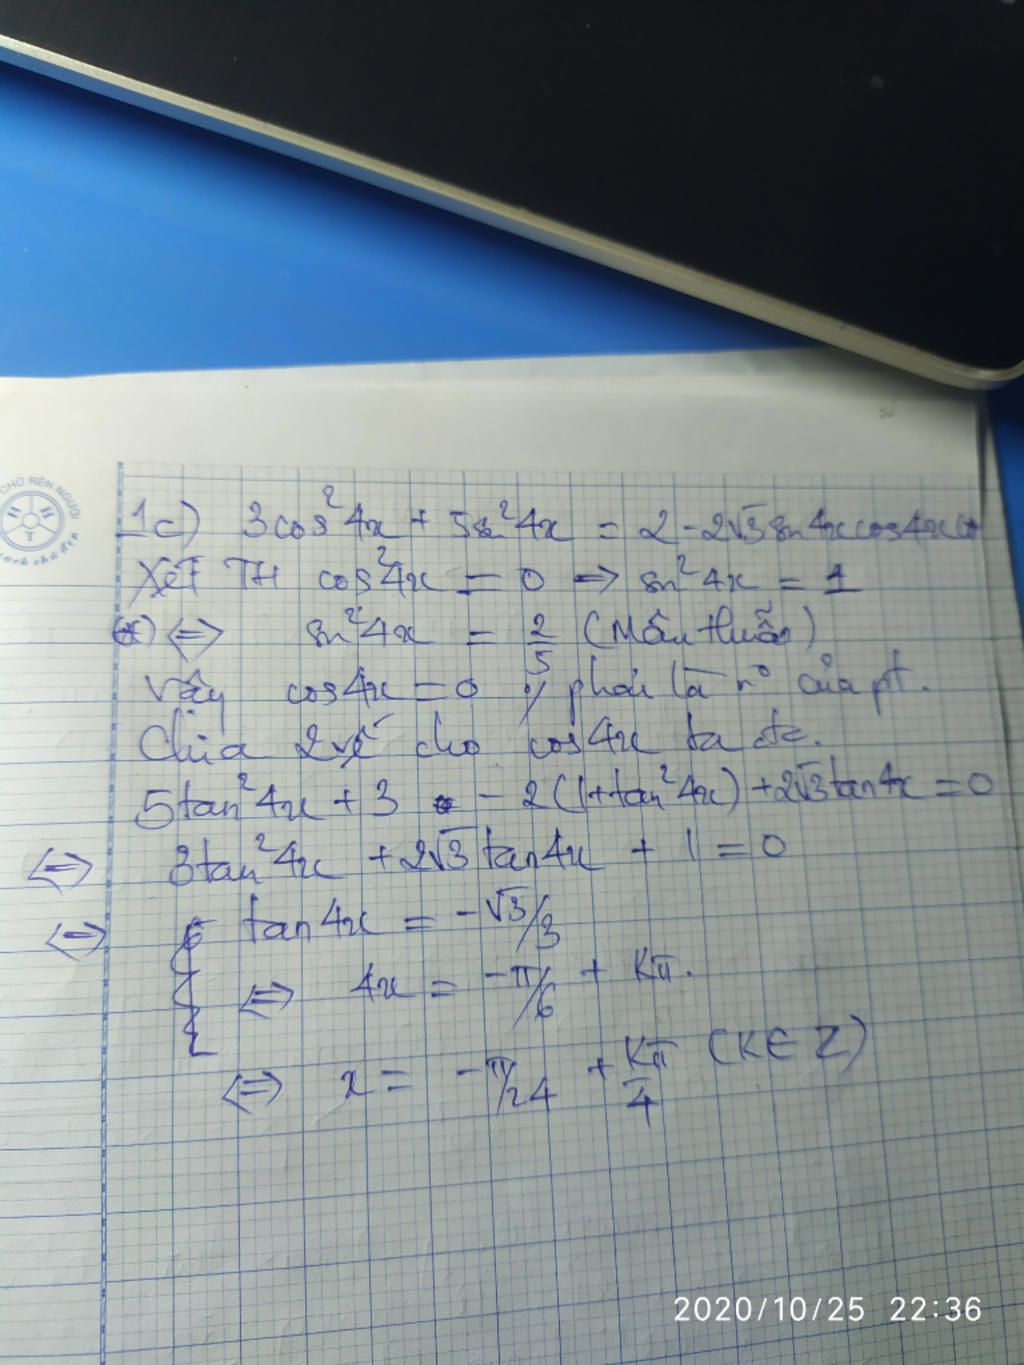 CHỮ RÈN NGƯỜI
H H
T
1c) 3cos²4x + 5sn²4x = 2 - 2√3 sn4xcos4x (*
Xét TH cos²4x = 0 => sn²4x = 1
(*) <=> sn²4x = 2/5 (Mâu thuẫn)
Vậy cos4x = 0 phải là n⁰ của pt.
Chia 2 vế cho cos4x ta đc.
5tan²4x + 3 - 2(1+tan²4x) + 2√3tan4x = 0
<=> 3tan²4x + 2√3 tan4x + 1 = 0
<=> tan4x = -√3/3
<=> 4x = -π/6 + kπ.
<=> x = -π/24 + kπ/4 (K∈Z)
2020/10/25 22:36